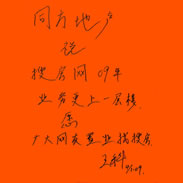 同方地产
祝
搜房网 09年
业务更上一层楼
广大网友置业指搜房